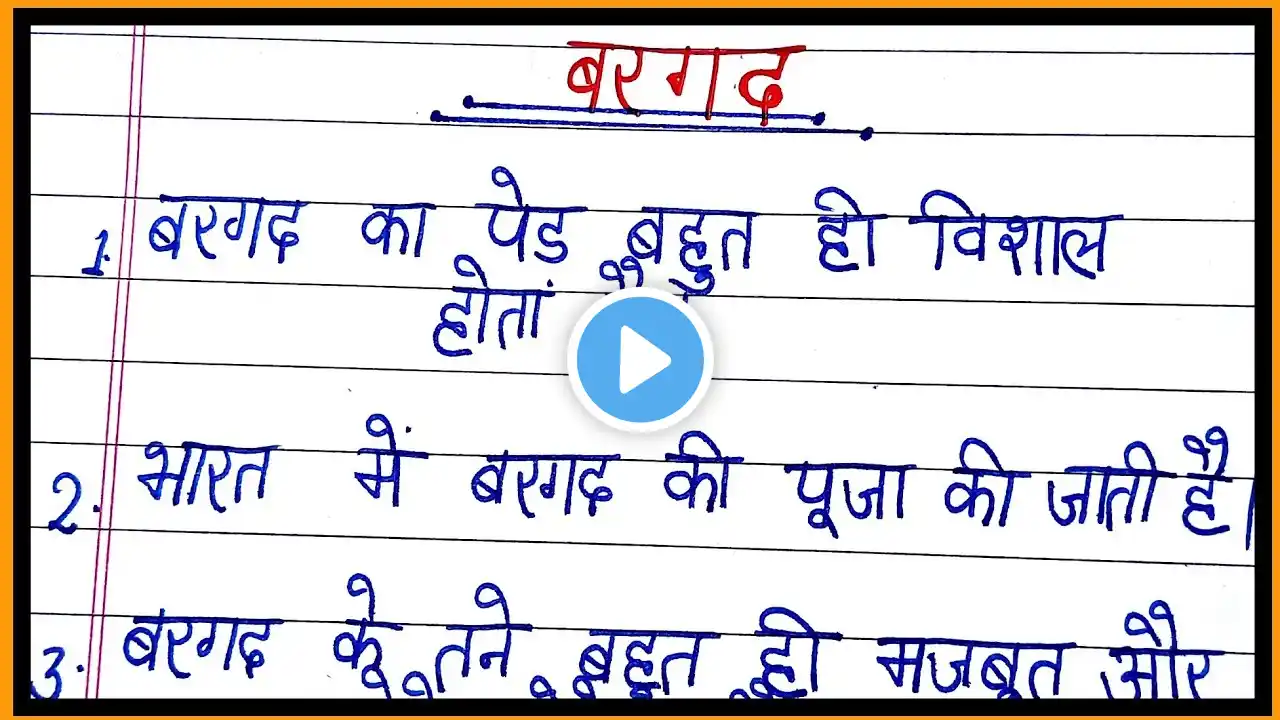 बरगद
1. बरगद का पेड बहुत ही विशाल
होतां है
2. भारत में बरगद की पूजा की जाती है।
3. बरगद के तने बहुत ही मजबूत और